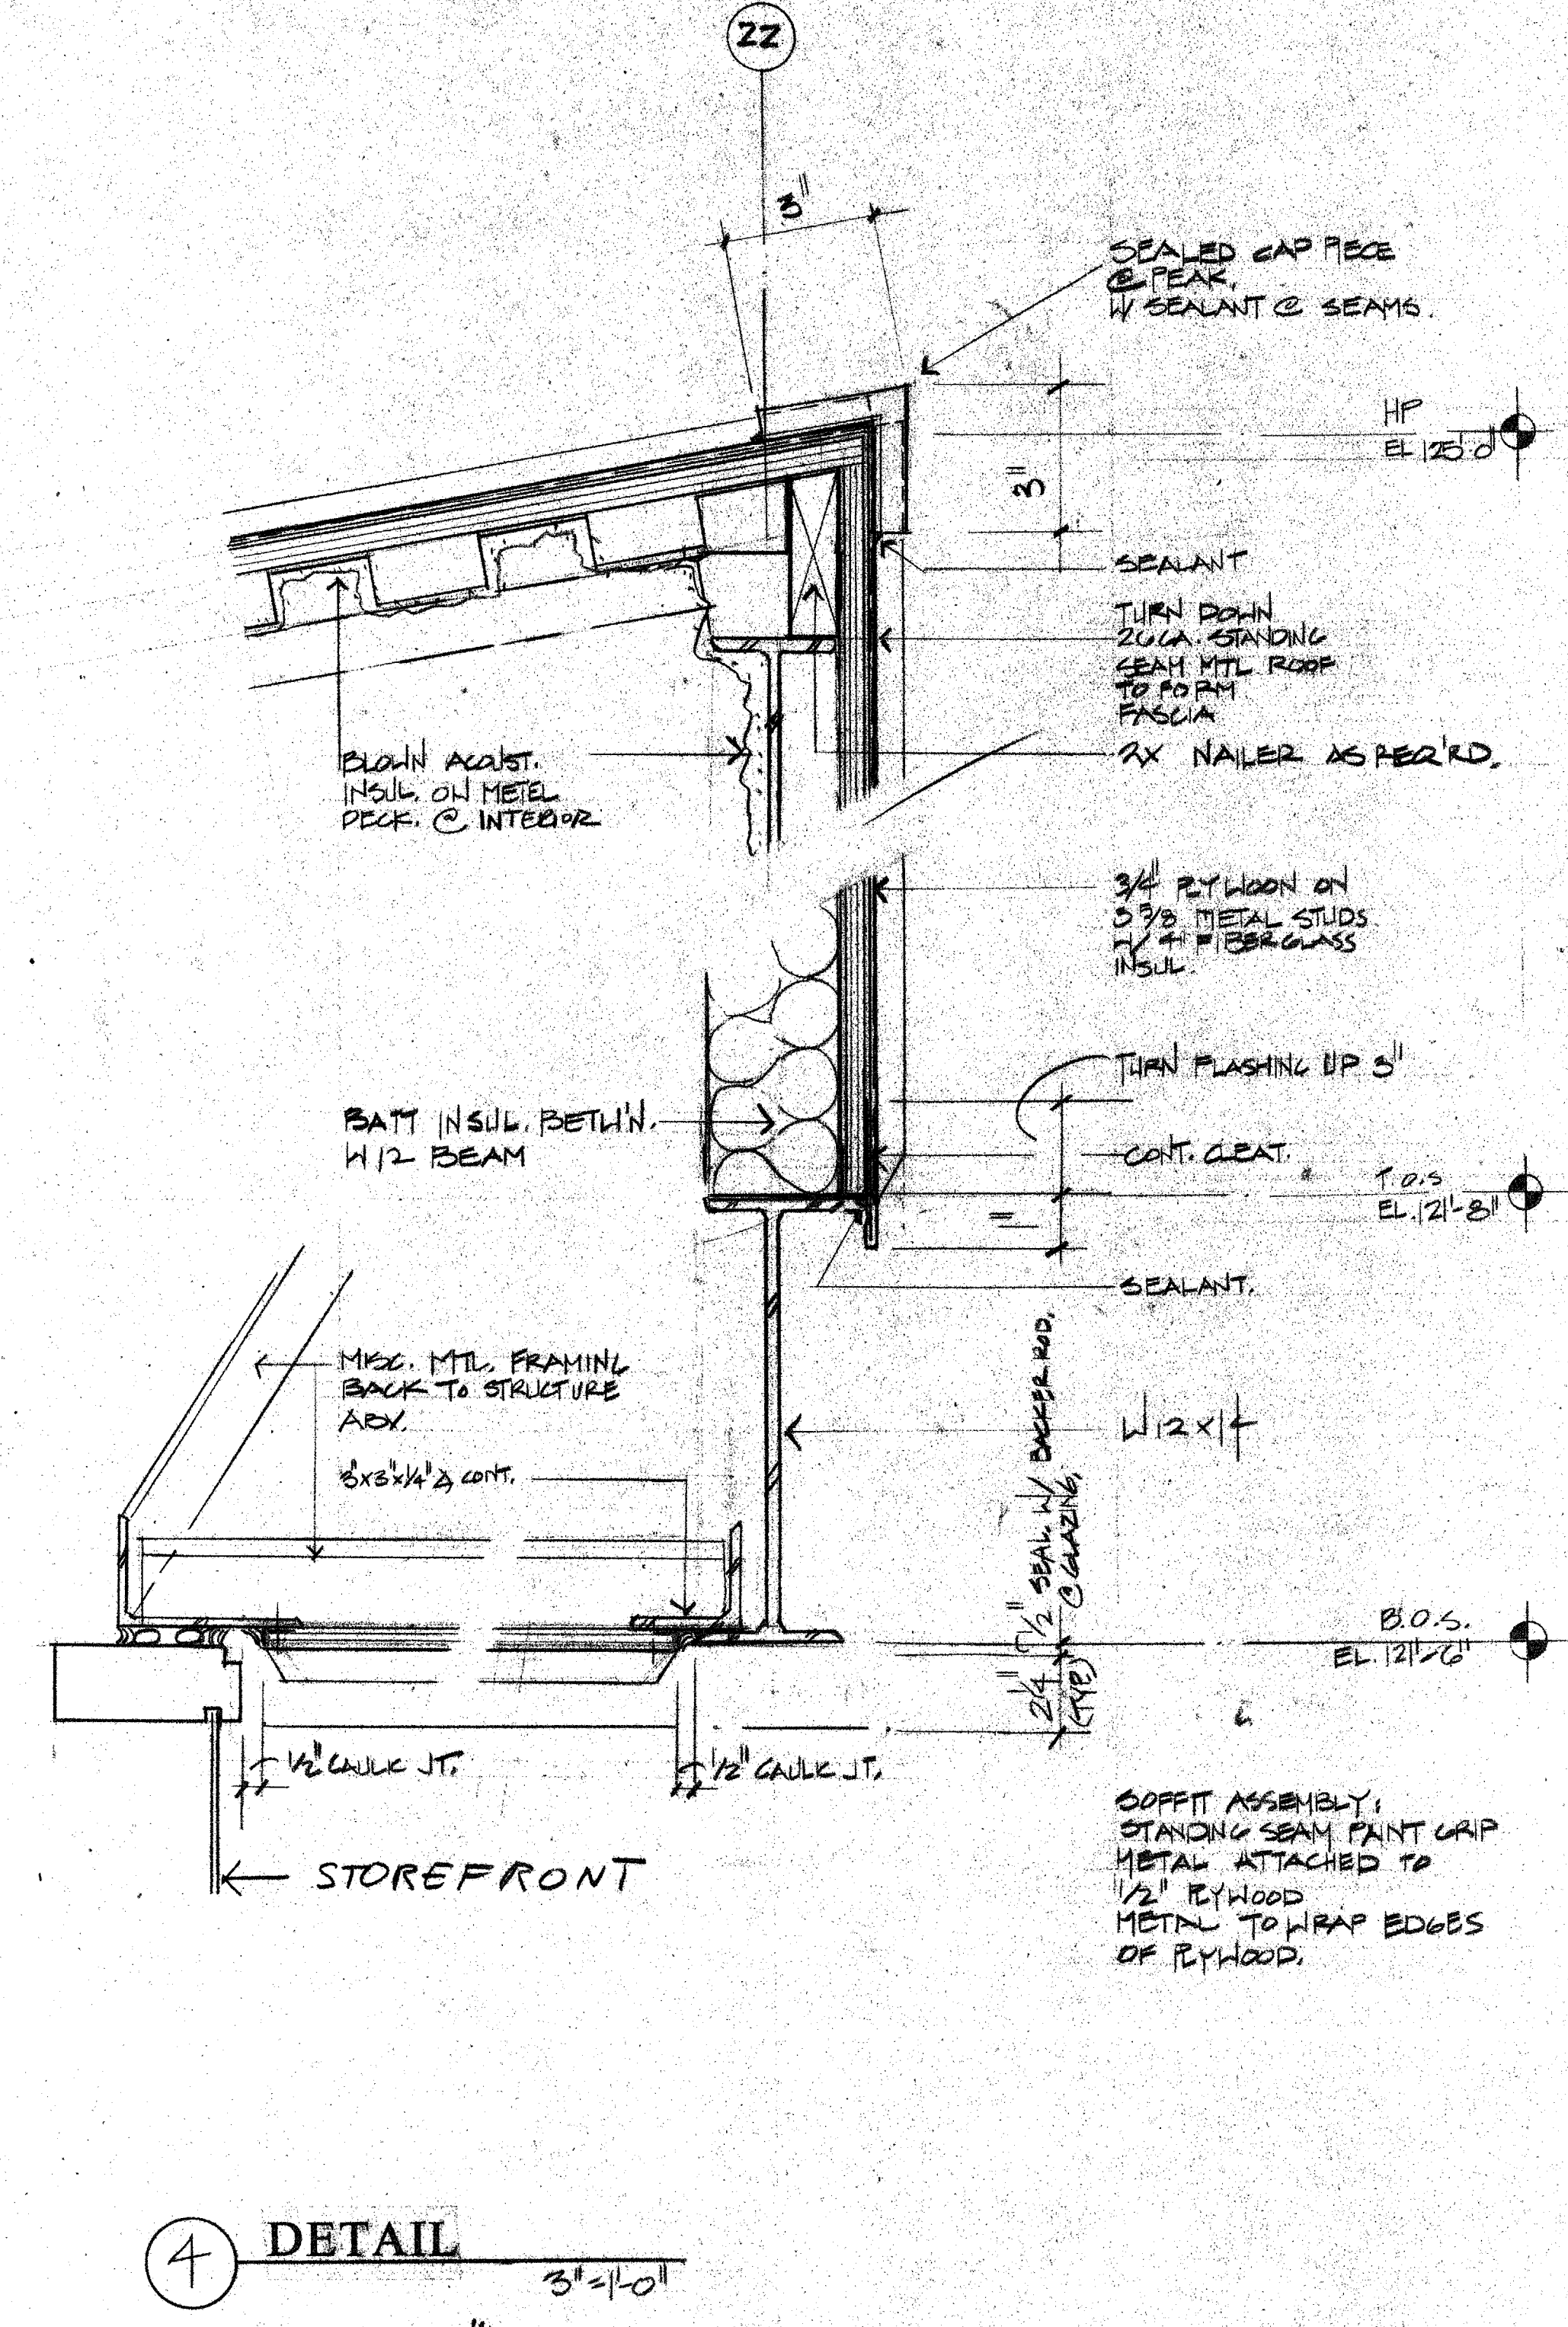 22
3"
SEALED CAP PIECE
@ PEAK,
W/ SEALANT @ SEAMS.
HP
EL 125'-0"
3"
SEALANT
TURN DOWN
26GA. STANDING
SEAM MTL ROOF
TO FORM
FASCIA
2X NAILER AS REQ'RD.
BLOWN ACOUST.
INSUL. ON METEL
DECK. @ INTERIOR
3/4" PLYWOON ON
3 5/8 METAL STUDS
W/ 4" FIBERGLASS
INSUL.
TURN FLASHING UP 3"
BATT INSUL. BETW'N.
W12 BEAM
CONT. CLEAT.
T.O.S
EL. 121'-8"
1"
SEALANT.
MISC. MTL. FRAMING
BACK TO STRUCTURE
ABV.
W12X14
3"x3"x1/4" ∠ CONT.
1/2" SEAL. W/ BACKER ROD.
@ GLAZING.
B.O.S.
EL. 121'-6"
2 1/4"
(TYP.)
1/2" CAULK JT.
1/2" CAULK JT.
STOREFRONT
SOFFIT ASSEMBLY:
STANDING SEAM PAINT GRIP
METAL ATTACHED TO
1/2" PLYWOOD
METAL TO WRAP EDGES
OF PLYWOOD.
4
DETAIL
3"=1'-0"